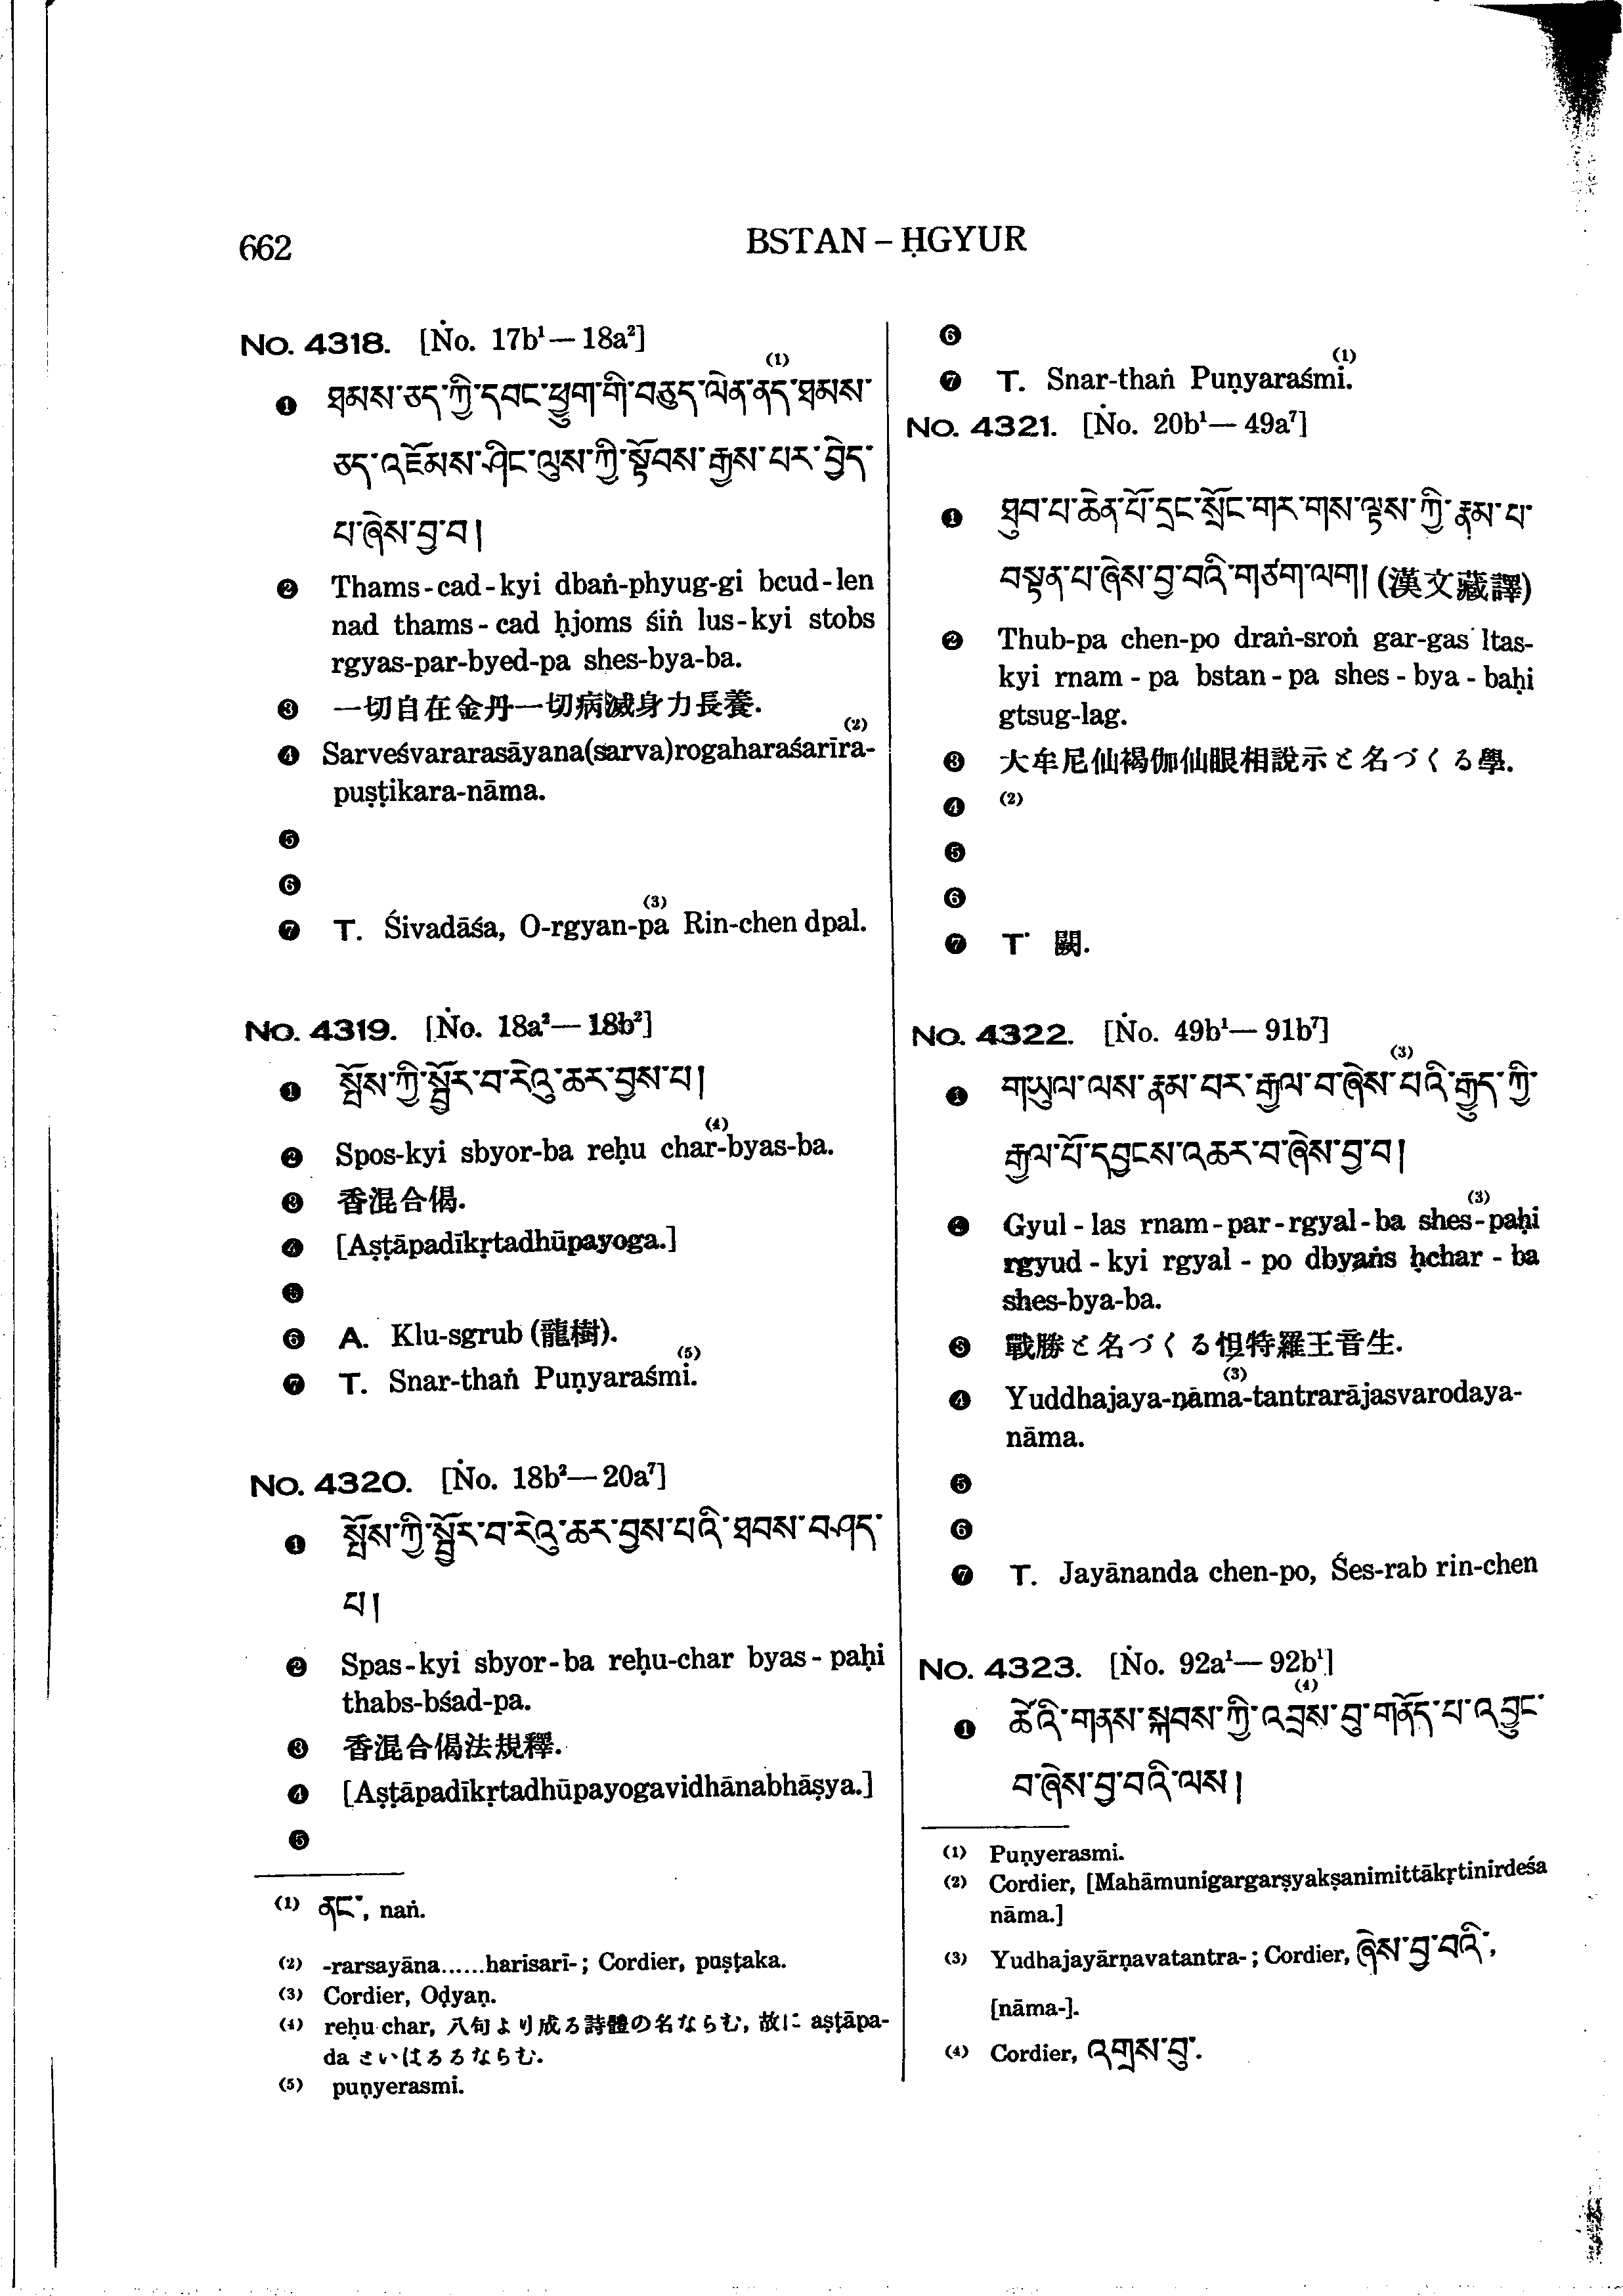 662
BSTAN – ḤGYUR
No. 4318. [Ṅo. 17b¹— 18a²]
(1)
❶ ཐམས་ཅད་ཀྱི་དབང་ཕྱུག་གི་བཅུད་ལེན་ནད་ཐམས་
ཅད་འཇོམས་ཤིང་ལུས་ཀྱི་སྟོབས་རྒྱས་པར་བྱེད་
པ་ཞེས་བྱ་བ།
❷ Thams-cad-kyi dbaṅ-phyug-gi bcud-len
nad thams-cad ḥjoms śiṅ lus-kyi stobs
rgyas-par-byed-pa shes-bya-ba.
❸ 一切自在金丹一切病滅身力長養.
(2)
❹ Sarveśvararasāyana(sarva)rogaharaśarīra-
puṣṭikara-nāma.
❺
❻
(3)
❼ T. Śivadāśa, O-rgyan-pa Rin-chen dpal.
No. 4319. [Ṅo. 18a²— 18b²]
❶ སྤོས་ཀྱི་སྦྱོར་བ་རེའུ་ཆར་བྱས་པ།
(4)
❷ Spos-kyi sbyor-ba reḥu char-byas-ba.
❸ 香混合偈.
❹ [Aṣṭāpadīkṛtadhūpayoga.]
❺
❻ A. Klu-sgrub (龍樹).
(5)
❼ T. Snar-thaṅ Puṇyaraśmi.
No. 4320. [Ṅo. 18b²— 20a⁷]
❶ སྤོས་ཀྱི་སྦྱོར་བ་རེའུ་ཆར་བྱས་པའི་ཐབས་བཤད་
པ།
❷ Spas-kyi sbyor-ba reḥu-char byas-paḥi
thabs-bśad-pa.
❸ 香混合偈法規釋.
❹ [Aṣṭāpadīkṛtadhūpayogavidhānabhāṣya.]
❺
(1) ནང་, naṅ.
(2) -rarsayāna......harisarī-; Cordier, puṣṭaka.
(3) Cordier, Oḍyaṇ.
(4) reḥu char, 八句より成る詩體の名ならむ, 故に aṣṭāpa-
da さいはるるならむ.
(5) puṇyerasmi.
❻
(1)
❼ T. Snar-thaṅ Puṇyaraśmi.
No. 4321. [Ṅo. 20b¹— 49a⁷]
❶ ཐུབ་པ་ཆེན་པོ་དྲང་སྲོང་གར་གས་ལྟས་ཀྱི་རྣམ་པ་
བསྟན་པ་ཞེས་བྱ་བའི་གཙག་ལག། (漢文藏譯)
❷ Thub-pa chen-po draṅ-sroṅ gar-gas ltas-
kyi rnam-pa bstan-pa shes-bya-baḥi
gtsug-lag.
❸ 大牟尼仙褐伽仙眼相說示と名づくる學.
❹ (2)
❺
❻
❼ T 闕.
No. 4322. [Ṅo. 49b¹— 91b⁷]
(3)
❶ གཡུལ་ལས་རྣམ་པར་རྒྱལ་བ་ཞེས་པའི་རྒྱུད་ཀྱི་
རྒྱལ་པོ་དབྱངས་འཆར་བ་ཞེས་བྱ་བ།
(3)
❷ Gyul-las rnam-par-rgyal-ba shes-paḥi
rgyud-kyi rgyal-po dbyaṅs ḥchar-ba
shes-bya-ba.
❸ 戰勝と名づくる怛特羅王音生.
(3)
❹ Yuddhajaya-ṇāma-tantrarājasvarodaya-
nāma.
❺
❻
❼ T. Jayānanda chen-po, Śes-rab rin-chen
No. 4323. [Ṅo. 92a¹— 92b¹]
(4)
❶ ཚེའི་གནས་སྐབས་ཀྱི་འབྲས་བུ་གནོད་པ་འབྱུང་
བ་ཞེས་བྱ་བའི་ལས།
(1) Puṇyerasmi.
(2) Cordier, [Mahāmunigargarṣyakṣanimittākṛtinirdeśa
nāma.]
(3) Yudhajayārṇavatantra-; Cordier, ཞེས་བྱ་བའི་,
[nāma-].
(4) Cordier, འགྲས་བུ་.